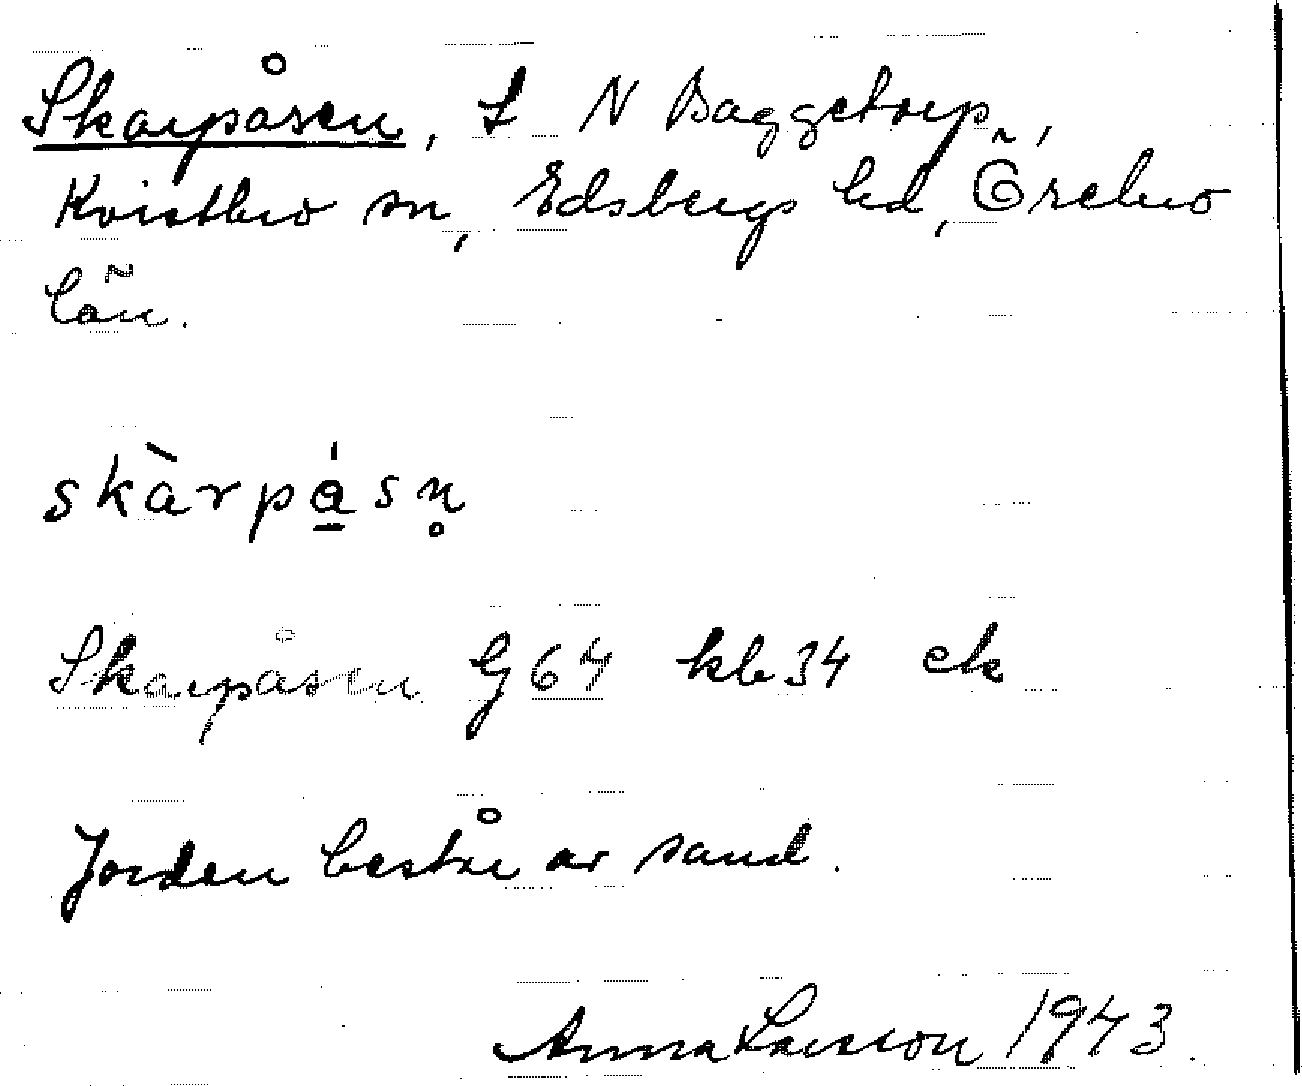 Skarpåsen, L N Baggetorp,
Kvistbro sn, Edsbergs hd, Örebro
län.
skàrpá̱sn̥
Skarpåsen G64 kb34 ek
Jorden består av sand.
Anna Larsson 1943.